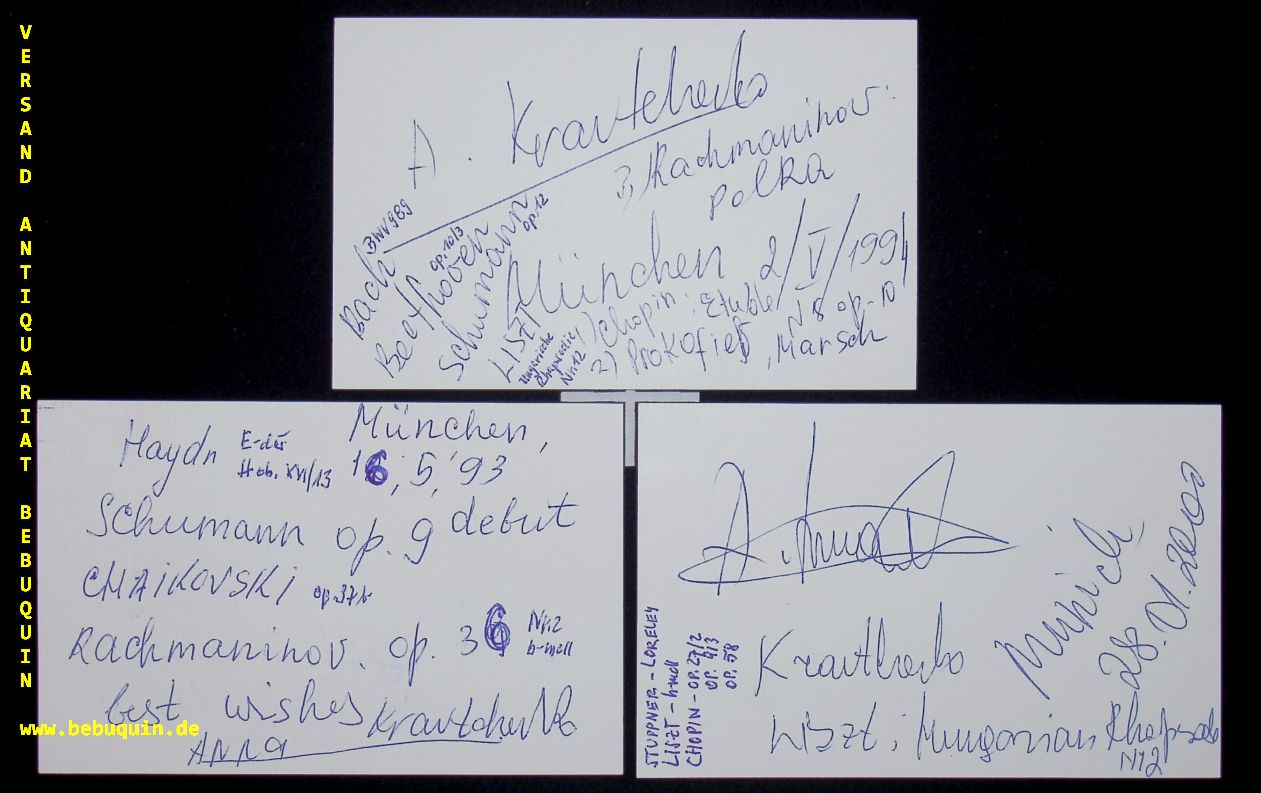 VERSAND ANTIQUARIAT BEBUQUIN
www.bebuquin.de
A. Kravtchenko
3) Rachmaninov:
Polka
Bach BWV 989
Beethoven op. 10/3
Schumann op. 12
LISZT
Ungarische
Rhapsodie
Nr. 12
München 2/V/1994
1) Chopin: Etude N 8 op. 10
2) Prokofieff, Marsch
Haydn E-dur
Hob. XVI/13
München,
16, 5, '93
Schumann op. 9 debut
CHAIKOVSKI op. 37b
Rachmaninov. op. 36 Nr. 2
b-moll
best wishes Kravtchenko
ANNA
STUPPNER - LORELEY
LISZT - h-moll
CHOPIN - OP. 27/2
OP. 58
Kravtchenko
Munich,
28.01.2000
Liszt: Hungarian Rhapsody
N12